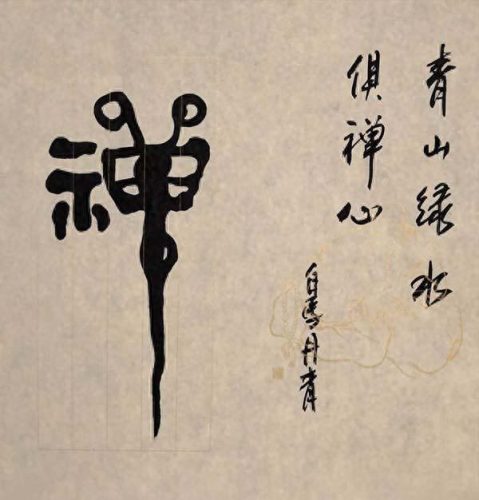 青山绿水
俱禅心
丹青
禅